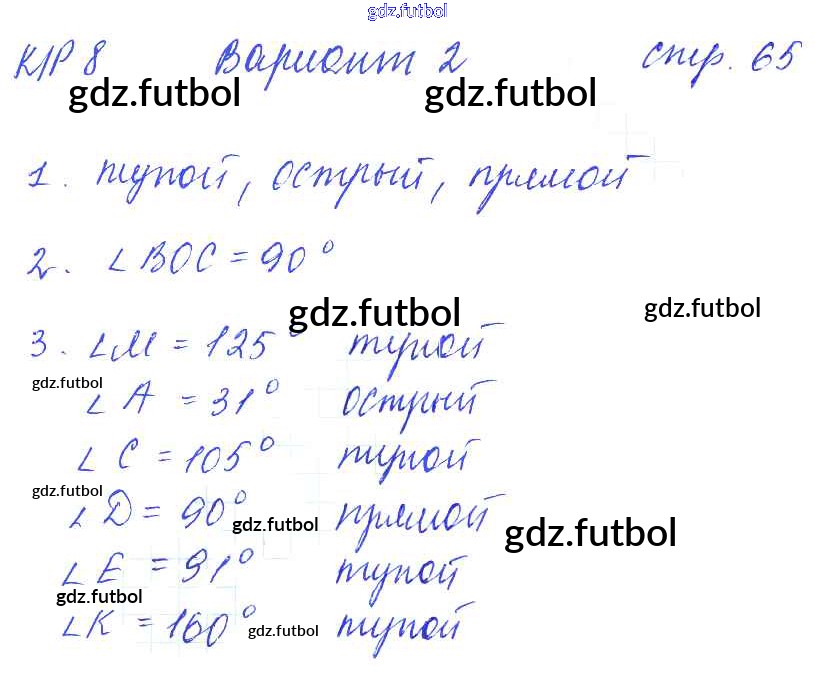 gdz.futbol
К/Р 8 Вариант 2 стр. 65
gdz.futbol gdz.futbol
1. тупой, острый, прямой
2. ∠BOC = 90°
gdz.futbol gdz.futbol
3. ∠M = 125° тупой
gdz.futbol
∠A = 31° острый
∠C = 105° тупой
gdz.futbol
∠D = 90° прямой
gdz.futbol gdz.futbol
∠E = 91° тупой
gdz.futbol
∠K = 160° тупой
gdz.futbol